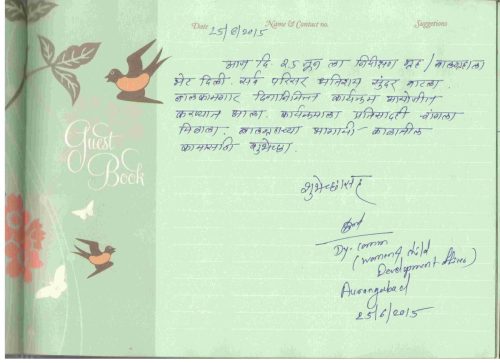 Date
Name & Contact no.
Suggestions
25/6/2015
आज दि २५ जून ला निरीक्षण गृह / बालगृहाला
भेट दिली. सर्व परिसर अतिशय सुंदर वाटला.
बालकामगार दिनानिमित्त कार्यक्रम आयोजीत
करण्यात आला. कार्यक्रमाला प्रतिसादही चांगला
मिळाला. बालगृहाच्या आगामी काळातील
कामासाठी शुभेच्छा.
शुभेच्छांसह
Guest
Book
Dy.
(women & child
Development officer)
Aurangabad
25/6/2015